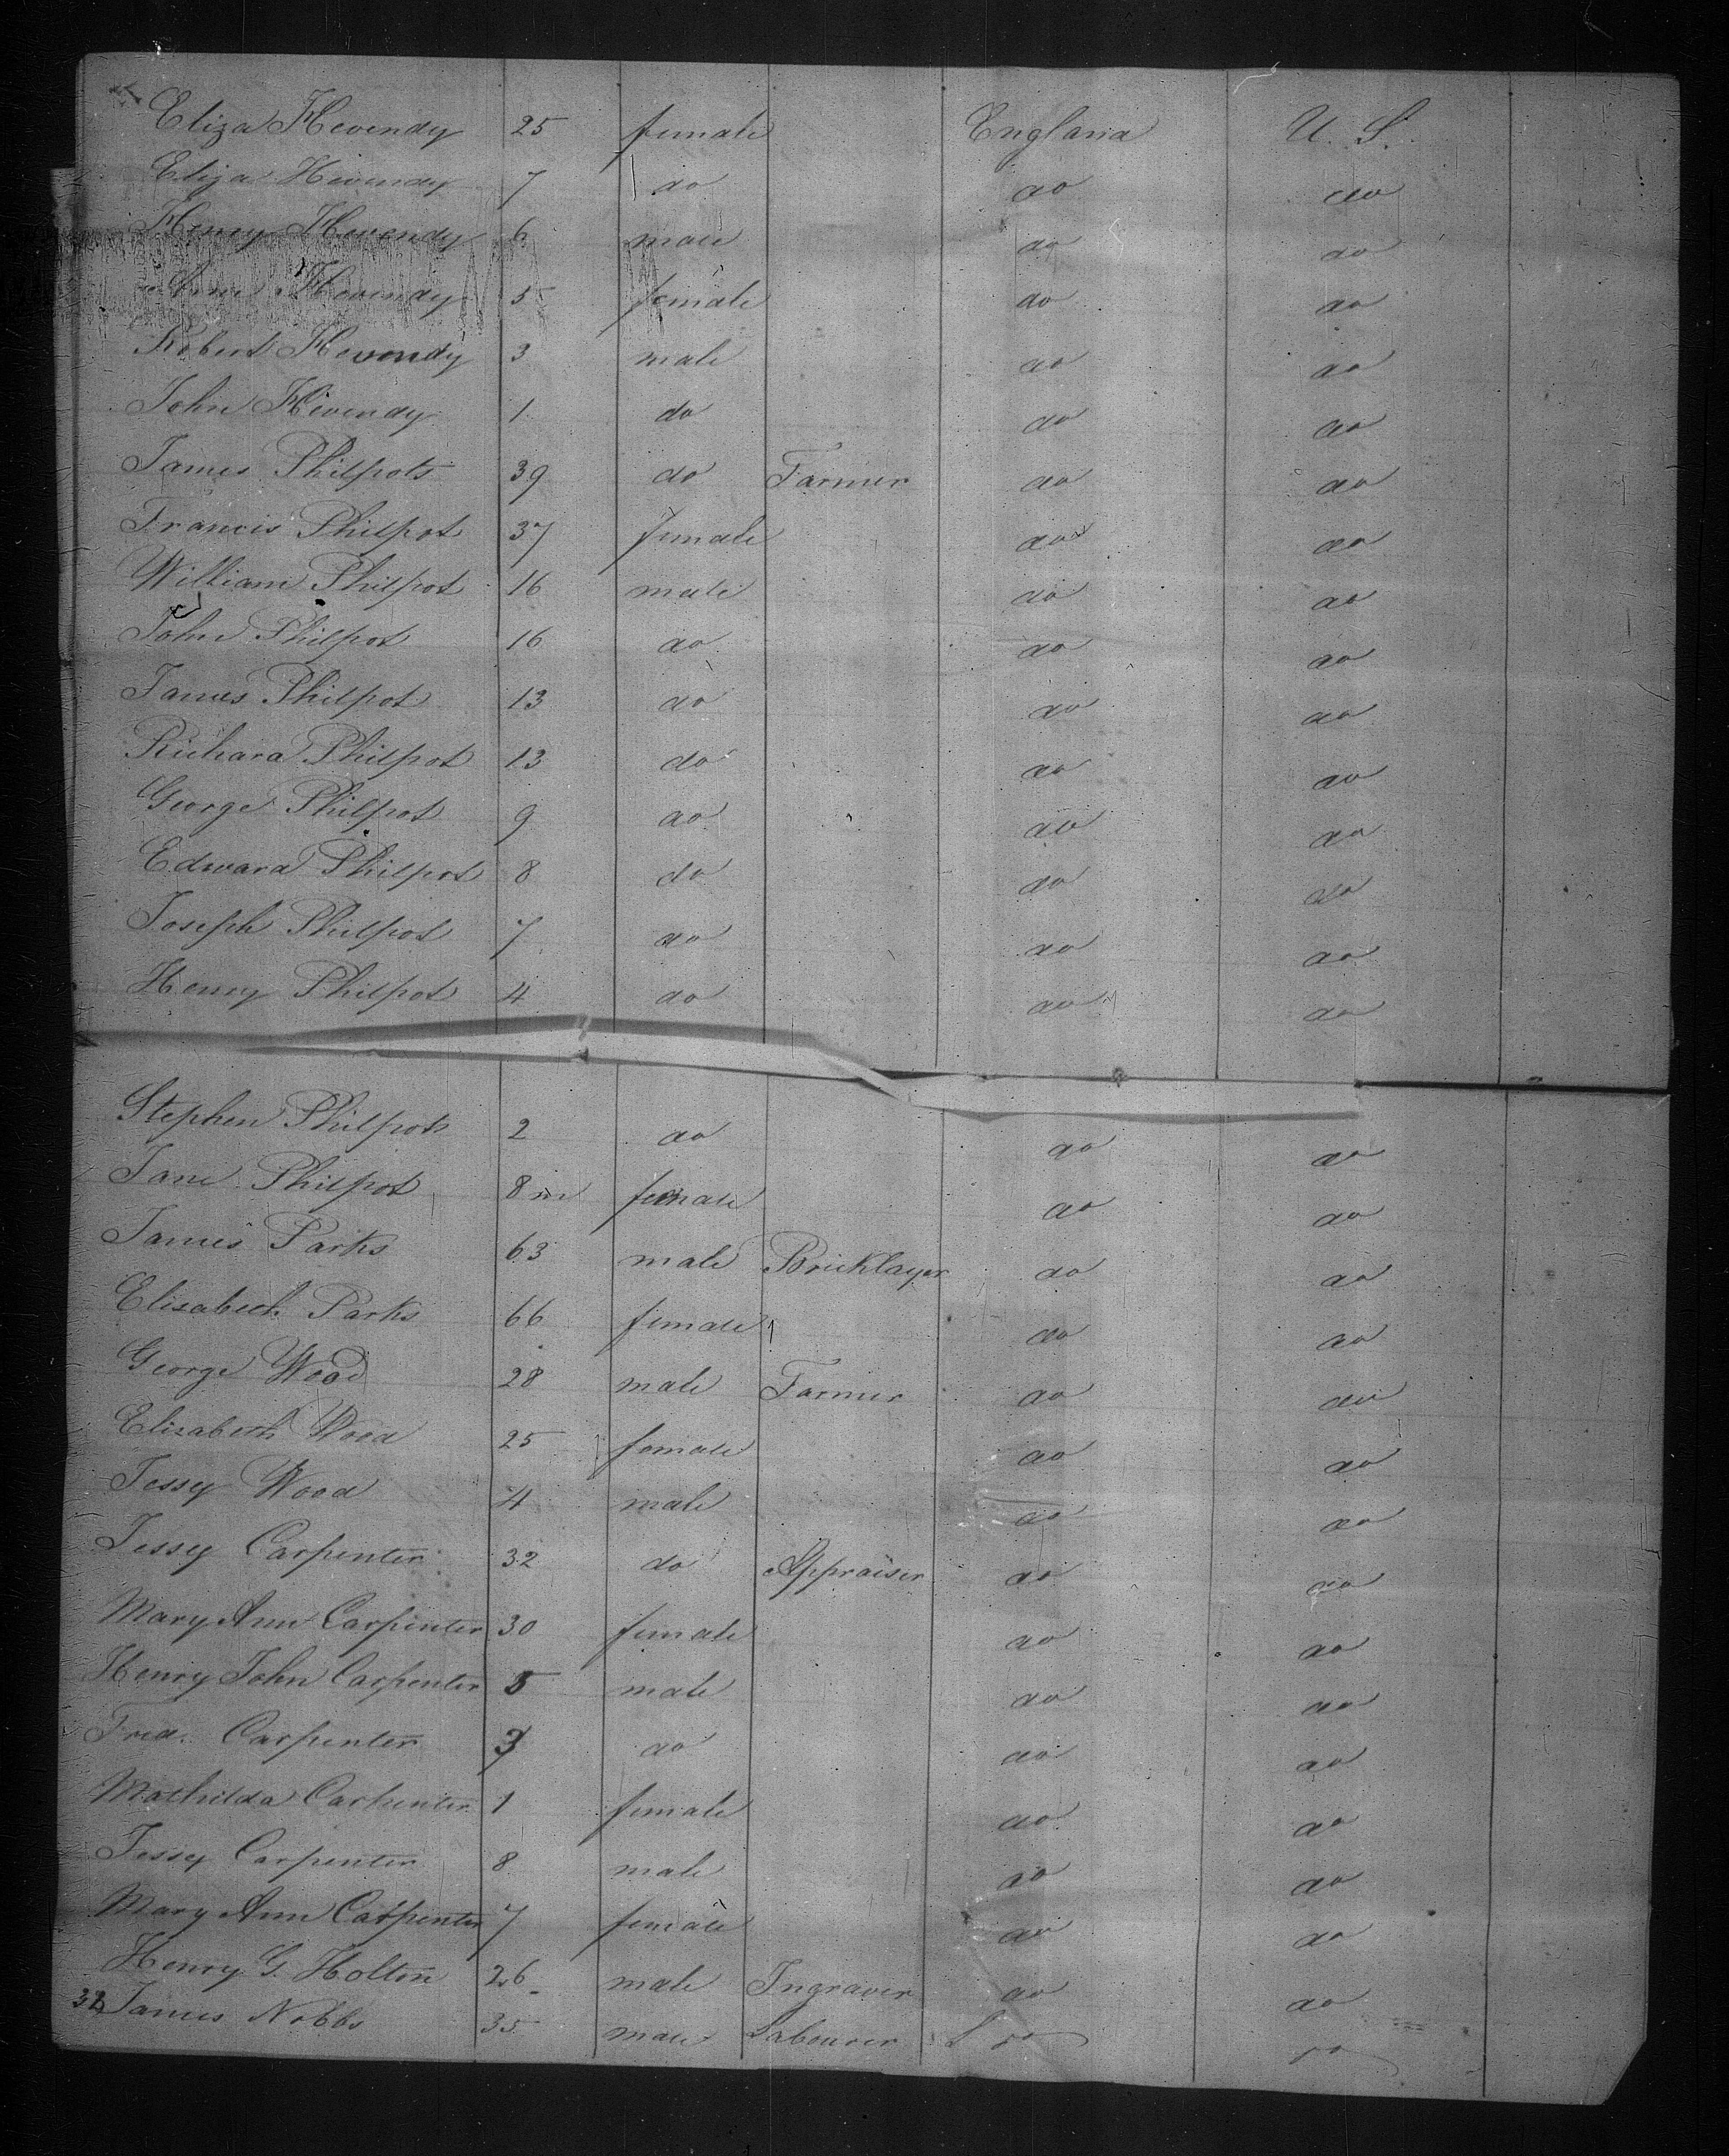 Eliza Hevendy 25 female England U. S.
Eliza Hevendy 7 do do do
Henry Hevendy 6 male do do
Ann Hevendy 5 female do do
Robert Hevendy 3 male do do
John Hevendy 1 do do do
James Philpots 39 do Farmer do do
Francis Philpot 37 female do do
William Philpot 16 male do do
John Philpot 16 do do do
James Philpot 13 do do do
Richard Philpot 13 do do do
George Philpot 9 do do do
Edward Philpot 8 do do do
Joseph Philpot 7 do do do
Henry Philpot 4 do do do
Stephen Philpots 2 do do do
Jane Philpot 8 m female do do
James Parks 63 male Bricklayer do do
Elisabeth Parks 66 female do do
George Wood 28 male Farmer do do
Elisabeth Wood 25 female do do
Jessy Wood 4 male do do
Jessy Carpenter 32 do Appraiser do do
Mary Ann Carpenter 30 female do do
Henry John Carpenter 5 male do do
Fred. Carpenter 3 do do do
Mathilda Carpenter 1 female do do
Jessy Carpenter 8 male do do
Mary Ann Carpenter 7 female do do
Henry G. Holton 26 male Ingraver do do
32 James Nobbs 35 male Labourer do do